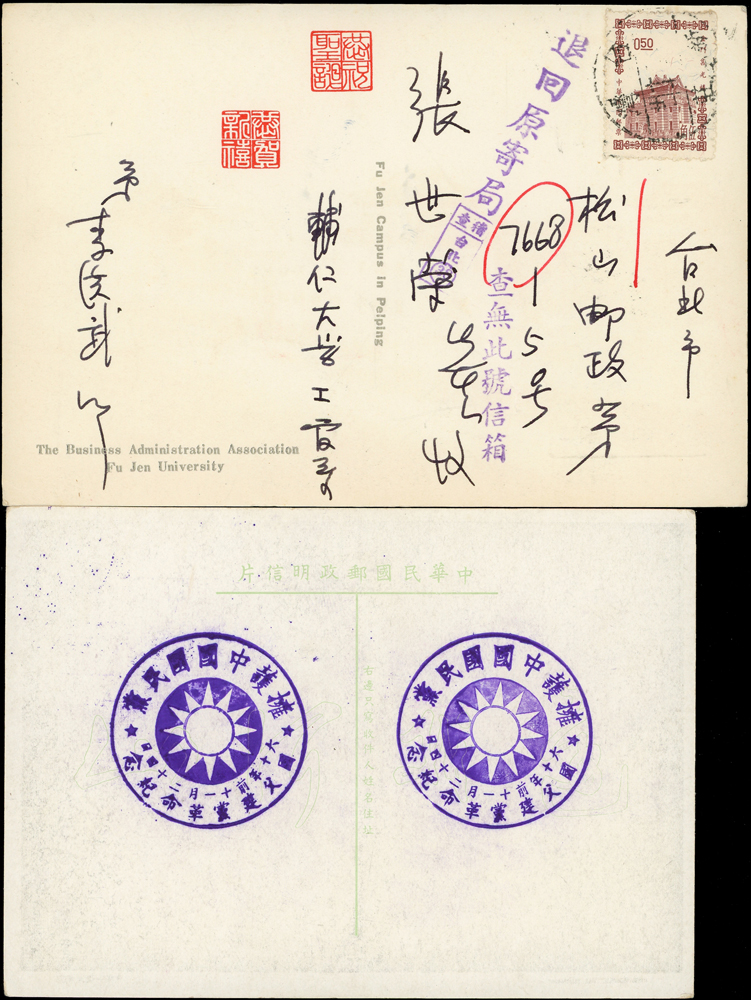 恭祝
聖誕
恭賀
新禧
0.50
台北市
松山郵政第
7668
1 5号
張世榮先生收
退回原寄局
查無此號信箱
Fu Jen Campus in Peiping
輔仁大学工
The Business Administration Association
Fu Jen University
中華民國郵政明信片
右邊只寫收件人姓名住址
擁護中國國民黨
國父建黨革命紀念
六十年前十一月二十四日
擁護中國國民黨
國父建黨革命紀念
六十年前十一月二十四日